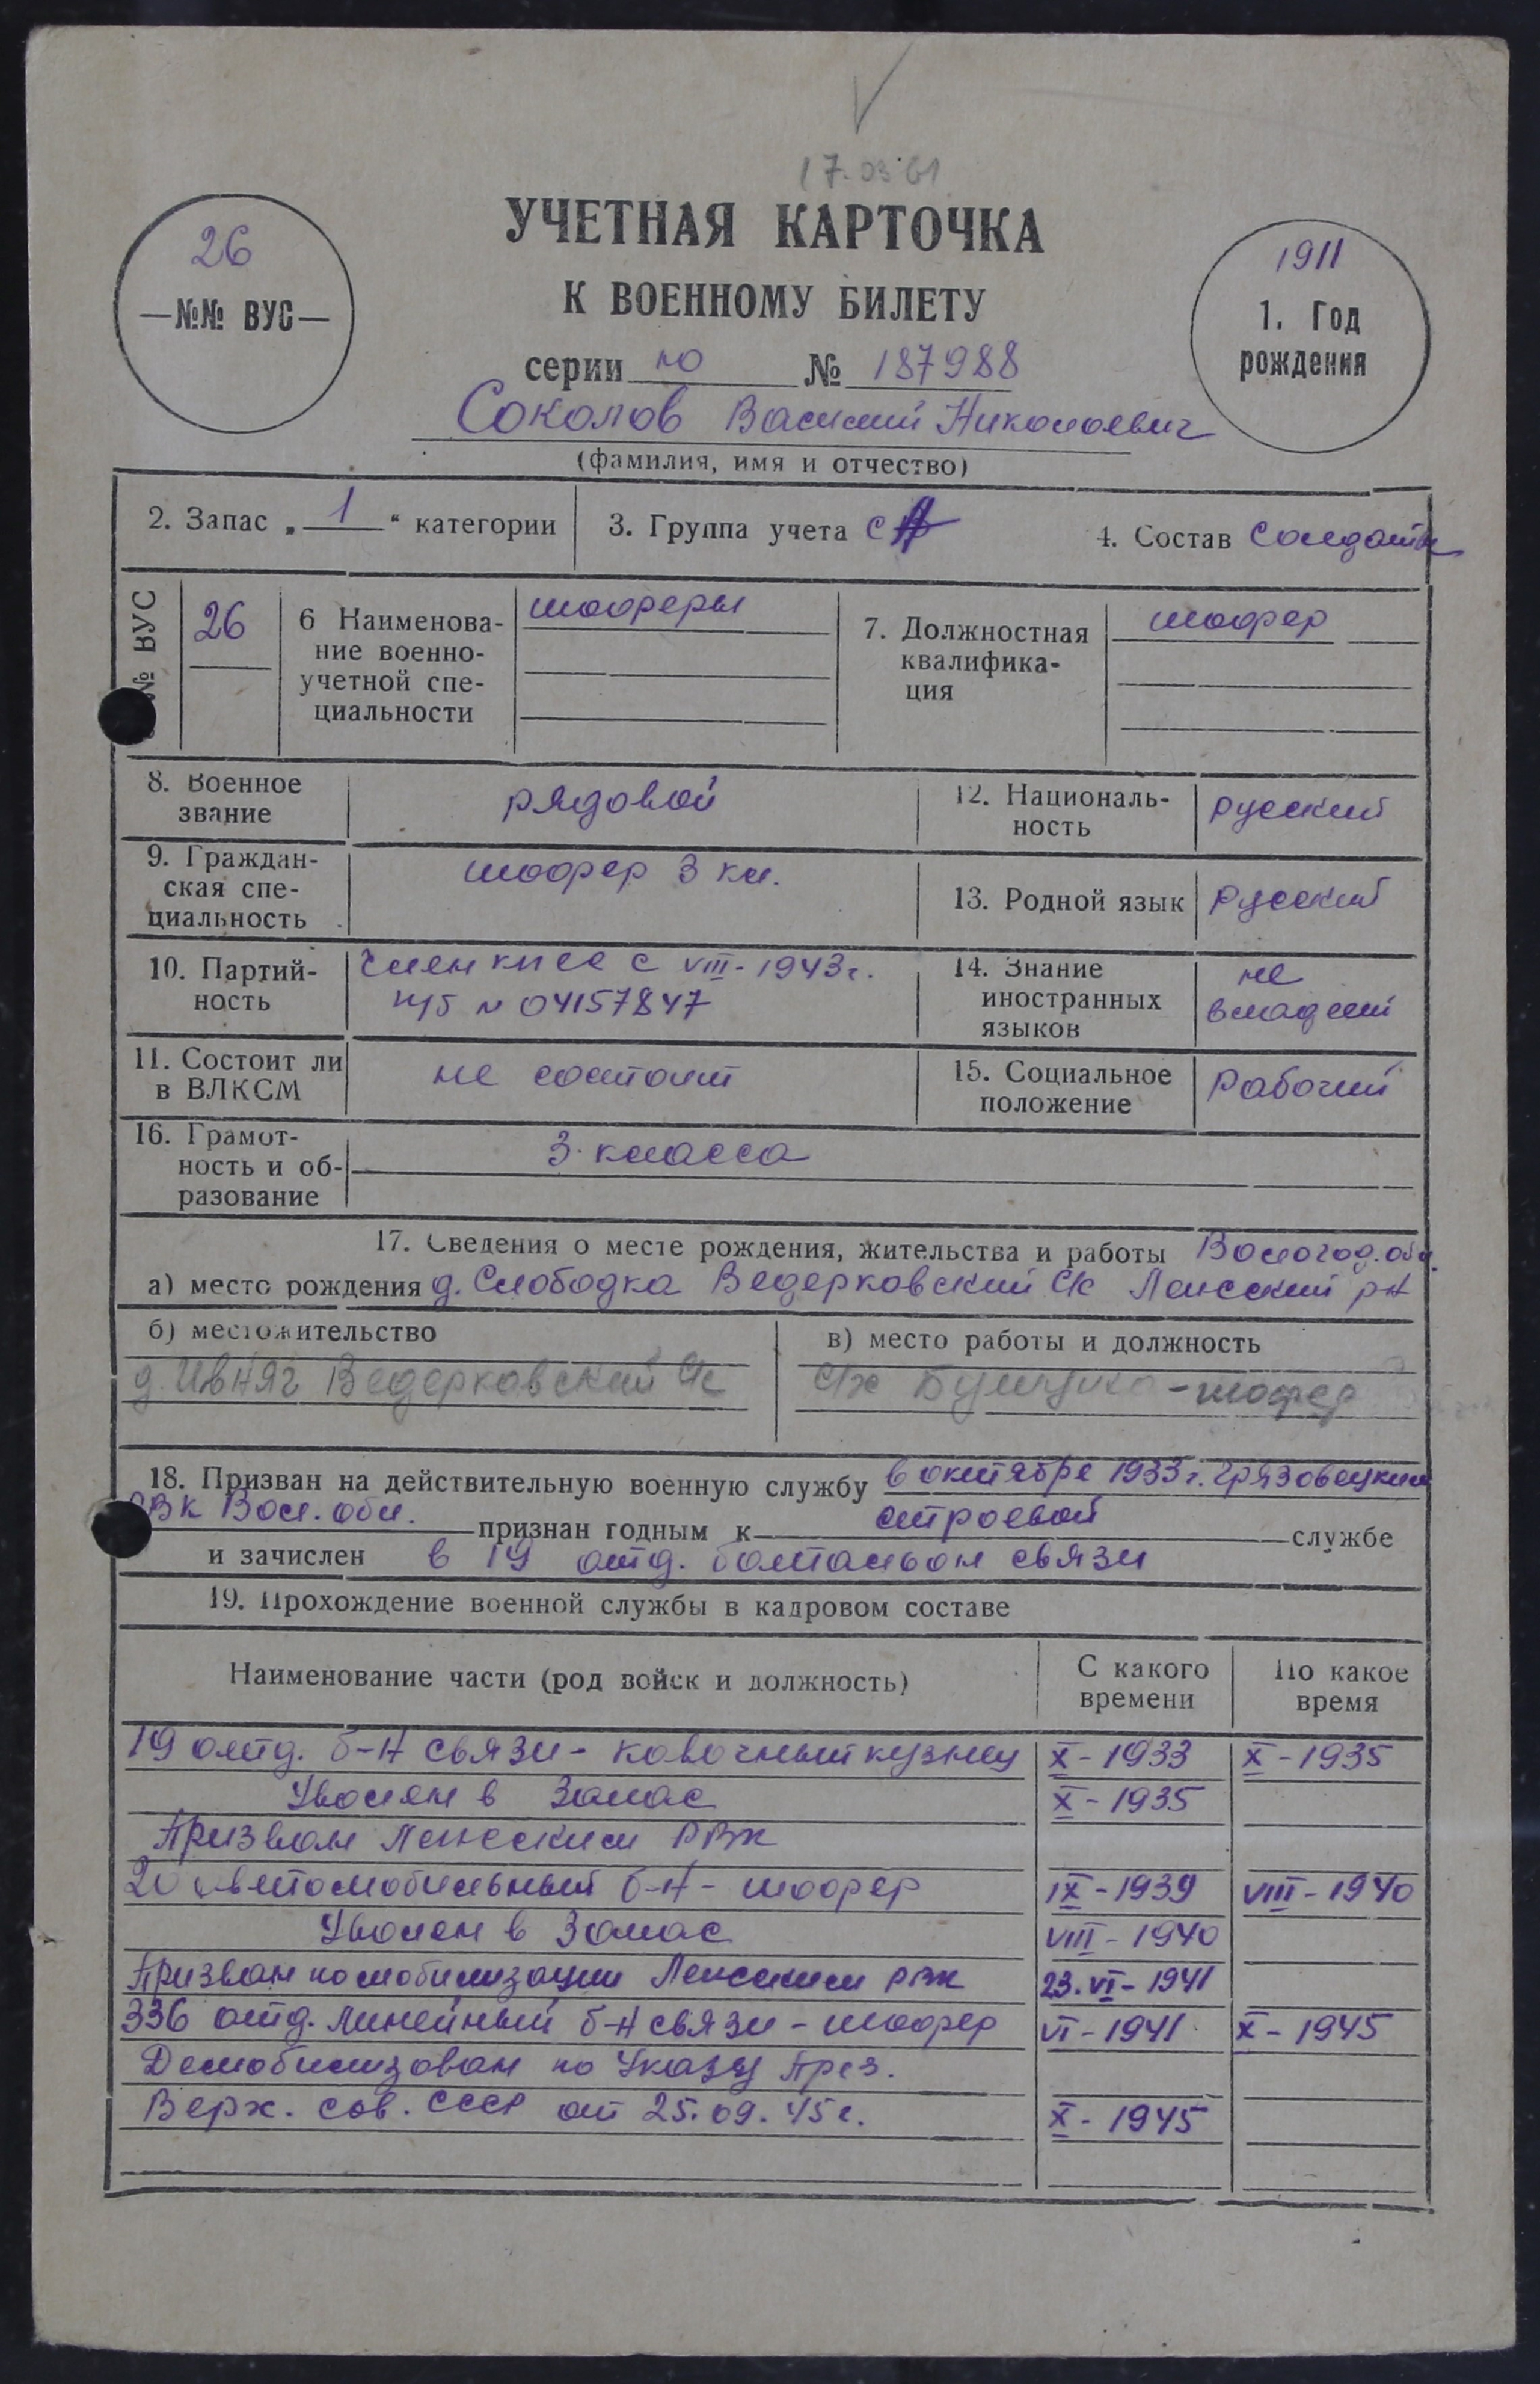 17.03 61
УЧЕТНАЯ КАРТОЧКА
К ВОЕННОМУ БИЛЕТУ
26
—№№ ВУС—
1911
1. Год
рождения
серии НО № 187988
Соколов Василий Николаевич
(фамилия, имя и отчество)
2. Запас „ 1 “ категории
3. Группа учета СА
4. Состав Солдаты
№ ВУС
26
6 Наименова-
ние военно-
учетной спе-
циальности
шоферы
7. Должностная
квалифика-
ция
шофер
8. Военное
звание
рядовой
12. Националь-
ность
русский
9. Граждан-
ская спе-
циальность
шофер 3 кл.
13. Родной язык русский
10. Партий-
ность
Член КПСС с VIII-1943г.
п/б N 04157847
14. Знание
иностранных
языков
не
владеет
11. Состоит ли
в ВЛКСМ
не состоит
15. Социальное
положение
Рабочий
16. Грамот-
ность и об-
разование
3 класса
17. Сведения о месте рождения, жительства и работы Вологод. обл.
а) место рождения д. Слободка Ведерковский С/с Лежский р-н
б) местожительство
д. Ивняг Ведерковский С/с
в) место работы и должность
С/х - шофер
18. Призван на действительную военную службу в октябре 1933г. Грязовецким
РВК Вол. обл. признан годным к строевой службе
и зачислен в 19 отд. батальон связи
19. Прохождение военной службы в кадровом составе
Наименование части (род войск и должность)
С какого
времени
По какое
время
19 отд. б-н связи - ковочный кузнец X - 1933 X - 1935
Уволен в Запас X - 1935
Призван Лежским РВК
20 автомобильный б-н - шофер IX - 1939 VIII - 1940
Уволен в Запас VIII - 1940
Призван по мобилизации Лежским РВК 23.VI - 1941
336 отд. линейный б-н связи - шофер VI - 1941 X - 1945
Демобилизован по Указу През.
Верх. сов. СССР от 25.09.45г. X - 1945